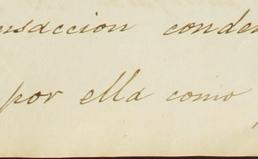 nsaccion conden
por ella como